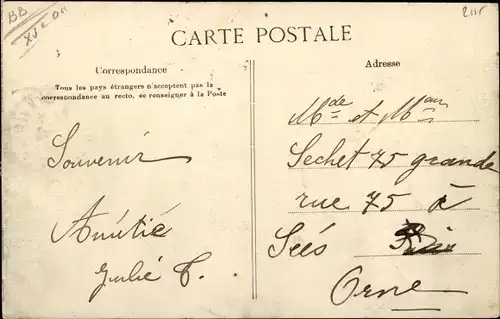 CARTE POSTALE
Correspondance
Tous les pays étrangers n'acceptent pas la
correspondance au recto, se renseigner à la Poste
Souvenir
Amitié
Julié T.
Adresse
Mde et Mr
Sechet 75 grande
rue 75 à
Sées
Orne
BB